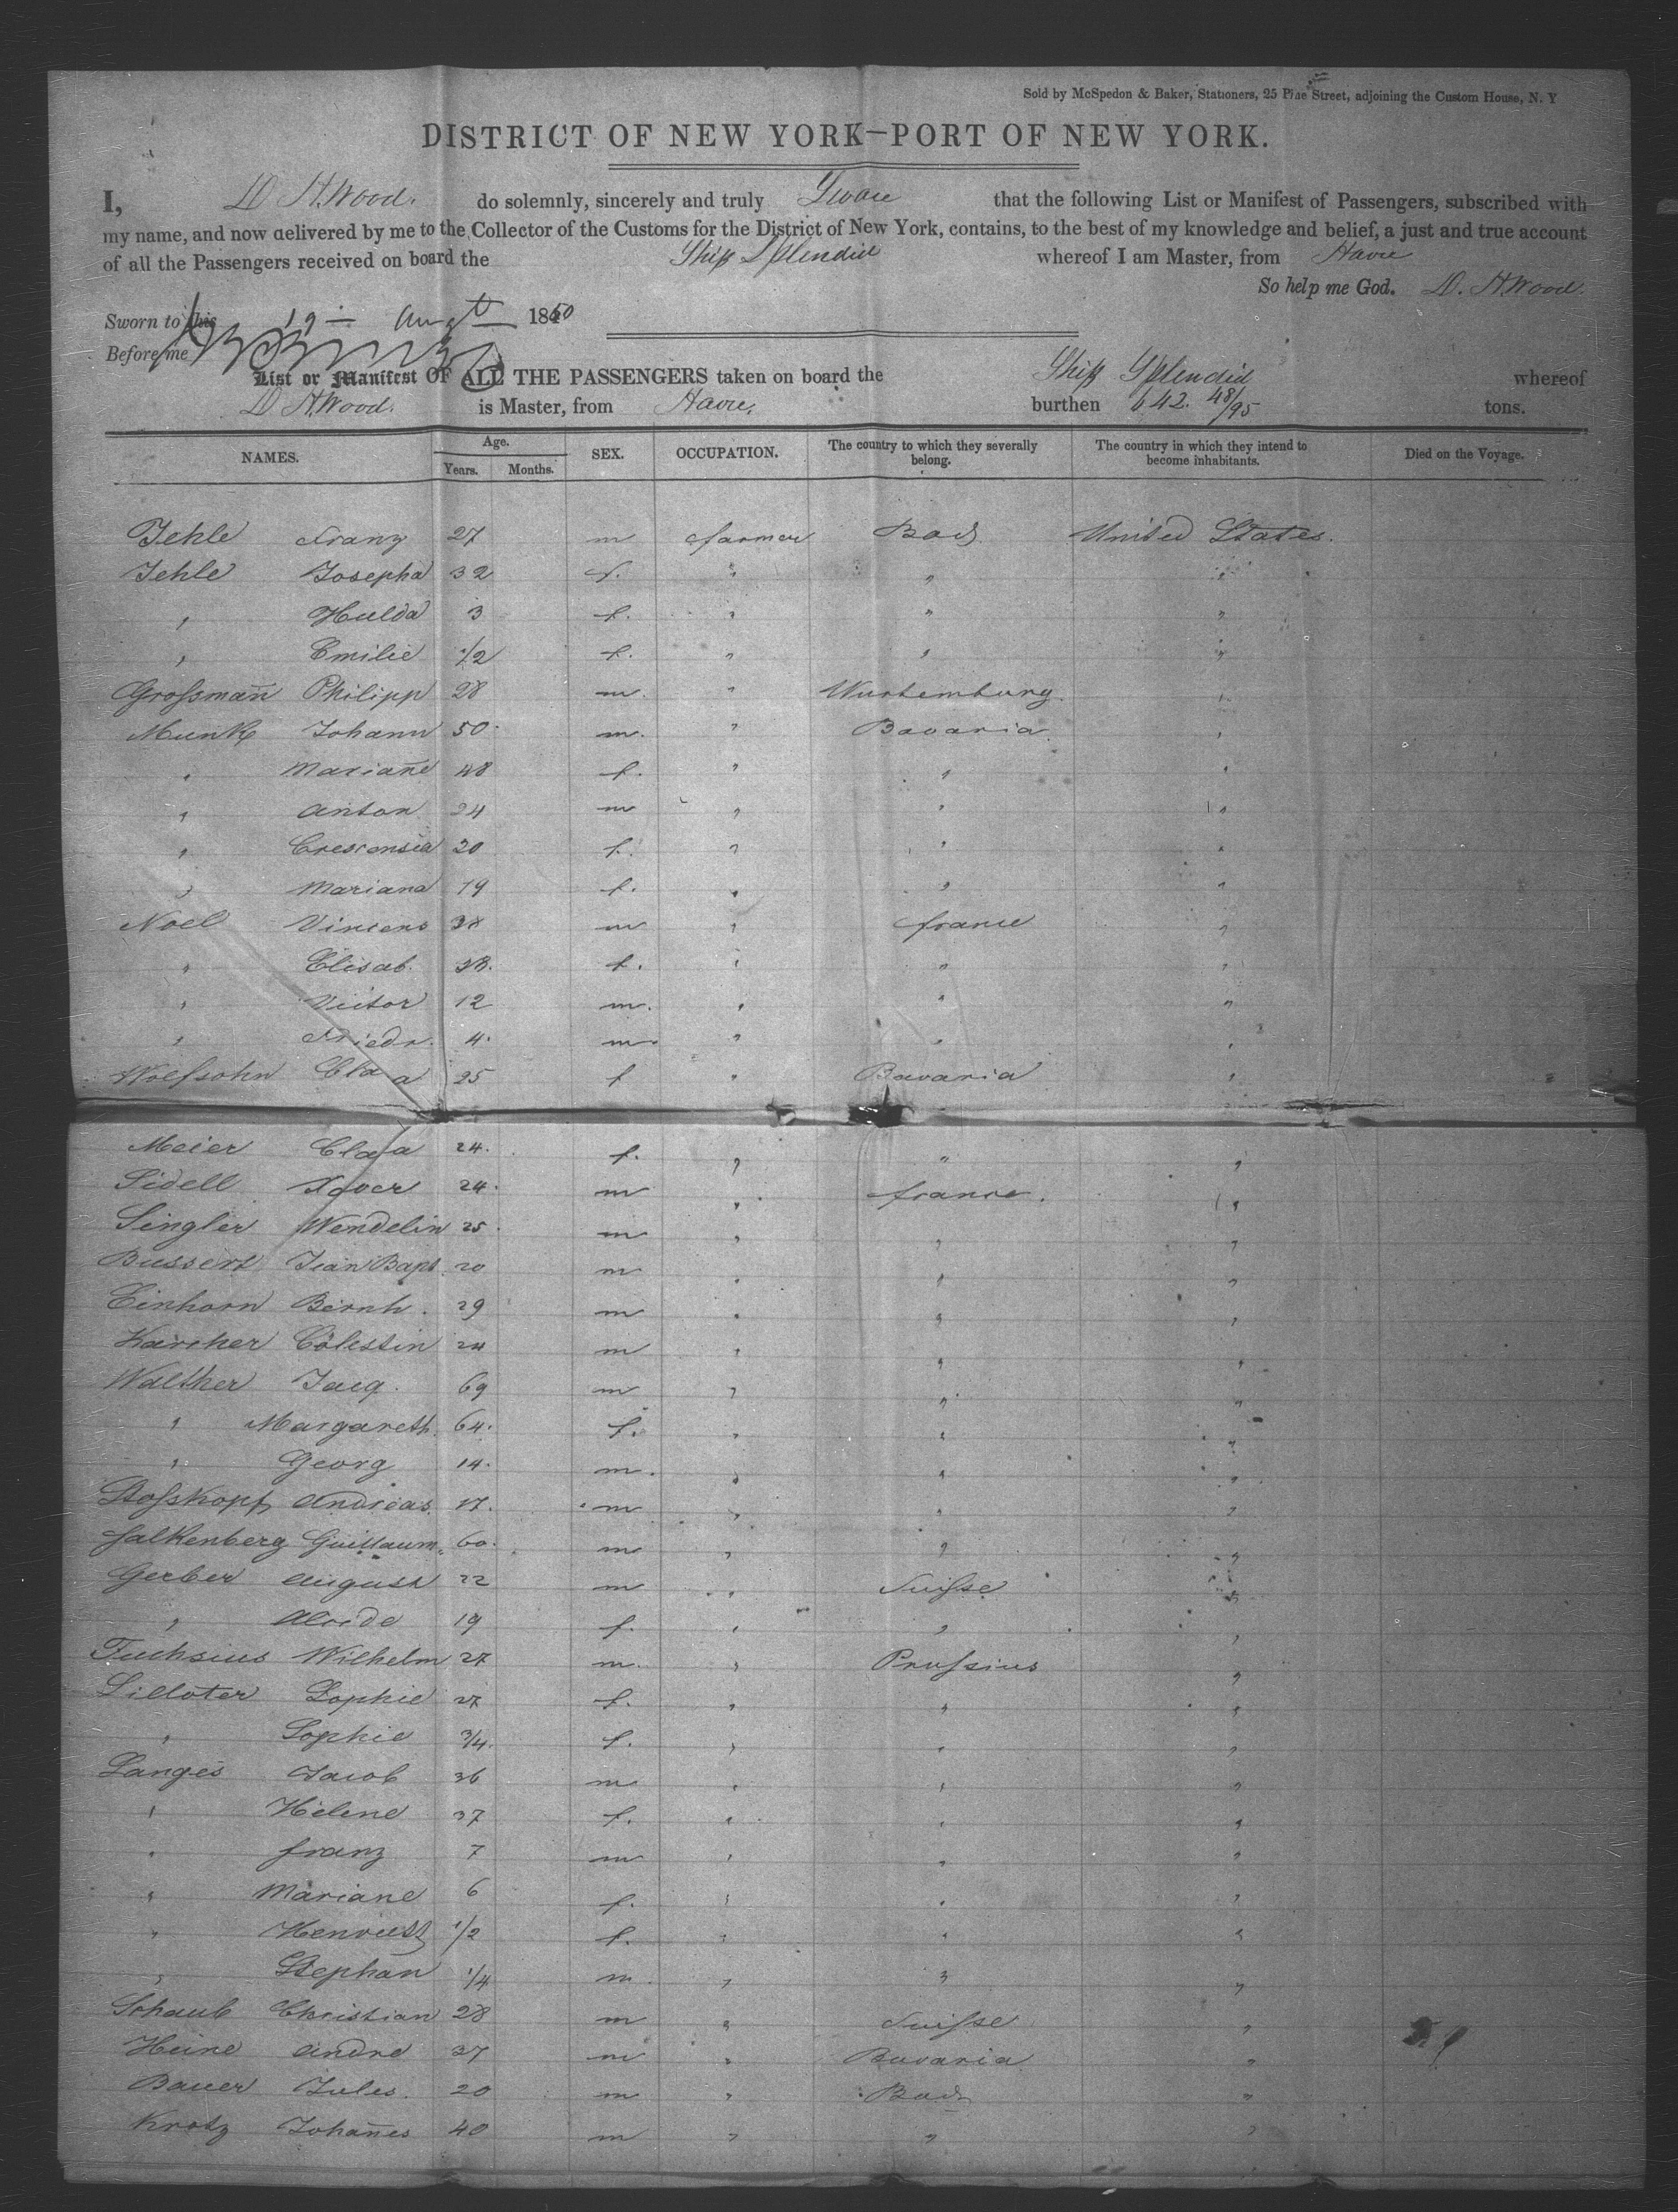 Sold by McSpedon & Baker, Stationers, 25 Pine Street, adjoining the Custom House, N. Y
DISTRICT OF NEW YORK—PORT OF NEW YORK.
I, D H. Wood. do solemnly, sincerely and truly Swear that the following List or Manifest of Passengers, subscribed with
my name, and now delivered by me to the Collector of the Customs for the District of New York, contains, to the best of my knowledge and belief, a just and true account
of all the Passengers received on board the Ship Splendid whereof I am Master, from Havre
So help me God. D. H. Wood.
Sworn to this 19 — Augst 1850
Before me
List or Manifest OF ALL THE PASSENGERS taken on board the Ship Splendid whereof
D H. Wood. is Master, from Havre, burthen 642. 48/95 tons.
NAMES. Age. Years. Months. SEX. OCCUPATION. The country to which they severally belong. The country in which they intend to become inhabitants. Died on the Voyage.
Jehle Franz 27 m farmer Bad. United States.
Jehle Josepha 32 f. " " "
" Hulda 3 f. " " "
" Emilie 1/2 f. " " "
Großman̄ Philipp 28 m. " Wurtemburg "
Munk Johann 50 m. " Bavaria "
" Marian̄e 48 f. " " "
" Anton 24 m " " "
" Cresconsia 20 f. " " "
" Mariana 19 f. " " "
Noel Vincens 38 m " france "
" Elisab. 38. f. " " "
" Victor 12 m. " " "
" Friedr. 4. m. " " "
Wolfsohn Clara 25 f " Bavaria "
Meier Clara 24. f. " " "
Sidell Xaver 24. m " france. "
Singler Wendelin 25. m " " "
Bussert Jean Bapt. 20 m " " "
Einhorn Bernh. 29 m " " "
Karcher Cölestin 24 m " " "
Walther Jacq. 69 m " " "
" Margareth. 64. f. " " "
" Georg 14. m. " " "
Stoßkopf Andreas 17. m " " "
falkenberg Guillaum. 60. m " " "
Gerber August 22 m " Suiſse "
" Alcide 19 f. " " "
Fuchsius Wilhelm 27 m. " Pruſsius "
Silloter Sophie 27 f. " " "
" Sophie 3/4. f. " " "
Langes Jacob 36 m " " "
" Helene 37 f. " " "
" franz 7 m " " "
" Mariane 6 f. " " "
" Henriett 1/2 f. " " "
" Stephan 1/4 m. " " "
Schaub Christian 28 m " Suiſse "
Heine Andre 37 m " Bavaria "
Bauer Jules. 20 m " Bad. "
Krotz Johan̄es 40 m " " "